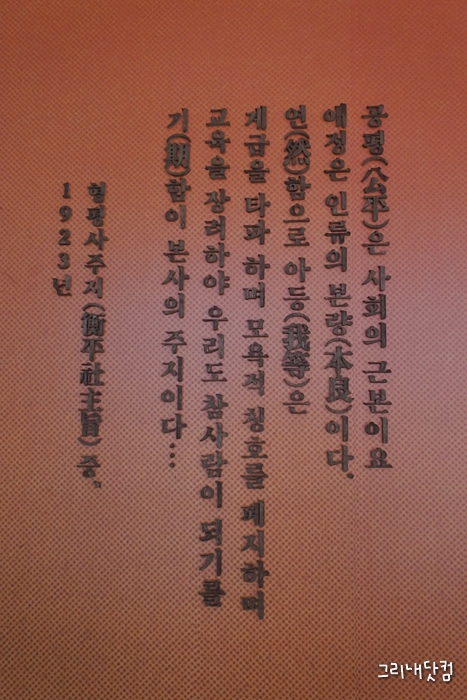 공평(公平)은 사회의 근본이요
애정은 인류의 본량(本良)이다.
연(然)함으로 아등(我等)은
계급을 타파 하며 모욕적 칭호를 폐지하며
교육을 장려하야 우리도 참사람이 되기를
기(期)함이 본사의 주지이다…
형평사주지(衡平社主旨) 중,
1923년
그리내닷컴